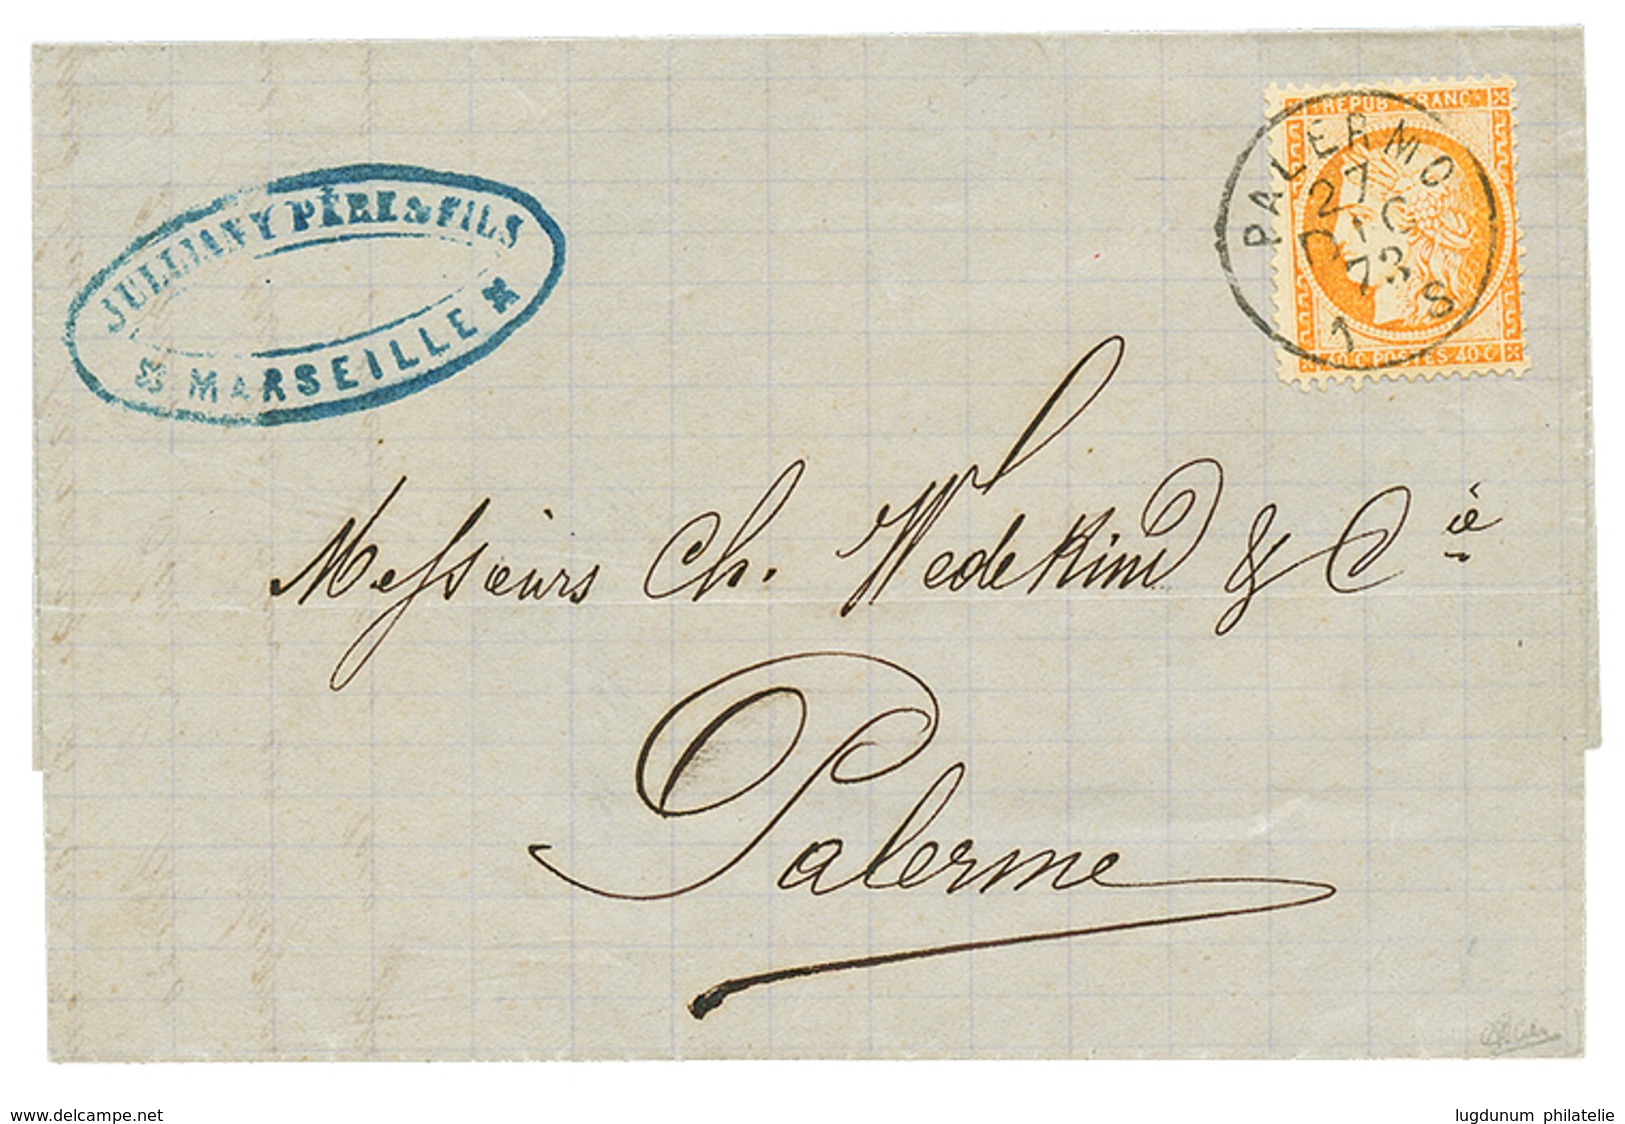 JULLIANY PÈRE & FILS
MARSEILLE
REPUB FRANC
40 C POSTES 40 C
PALERMO
27
DIC
73
1 S
Messieurs Ch. Wedekind & Cie
Palerme
www.delcampe.net
lugdunum philatelie